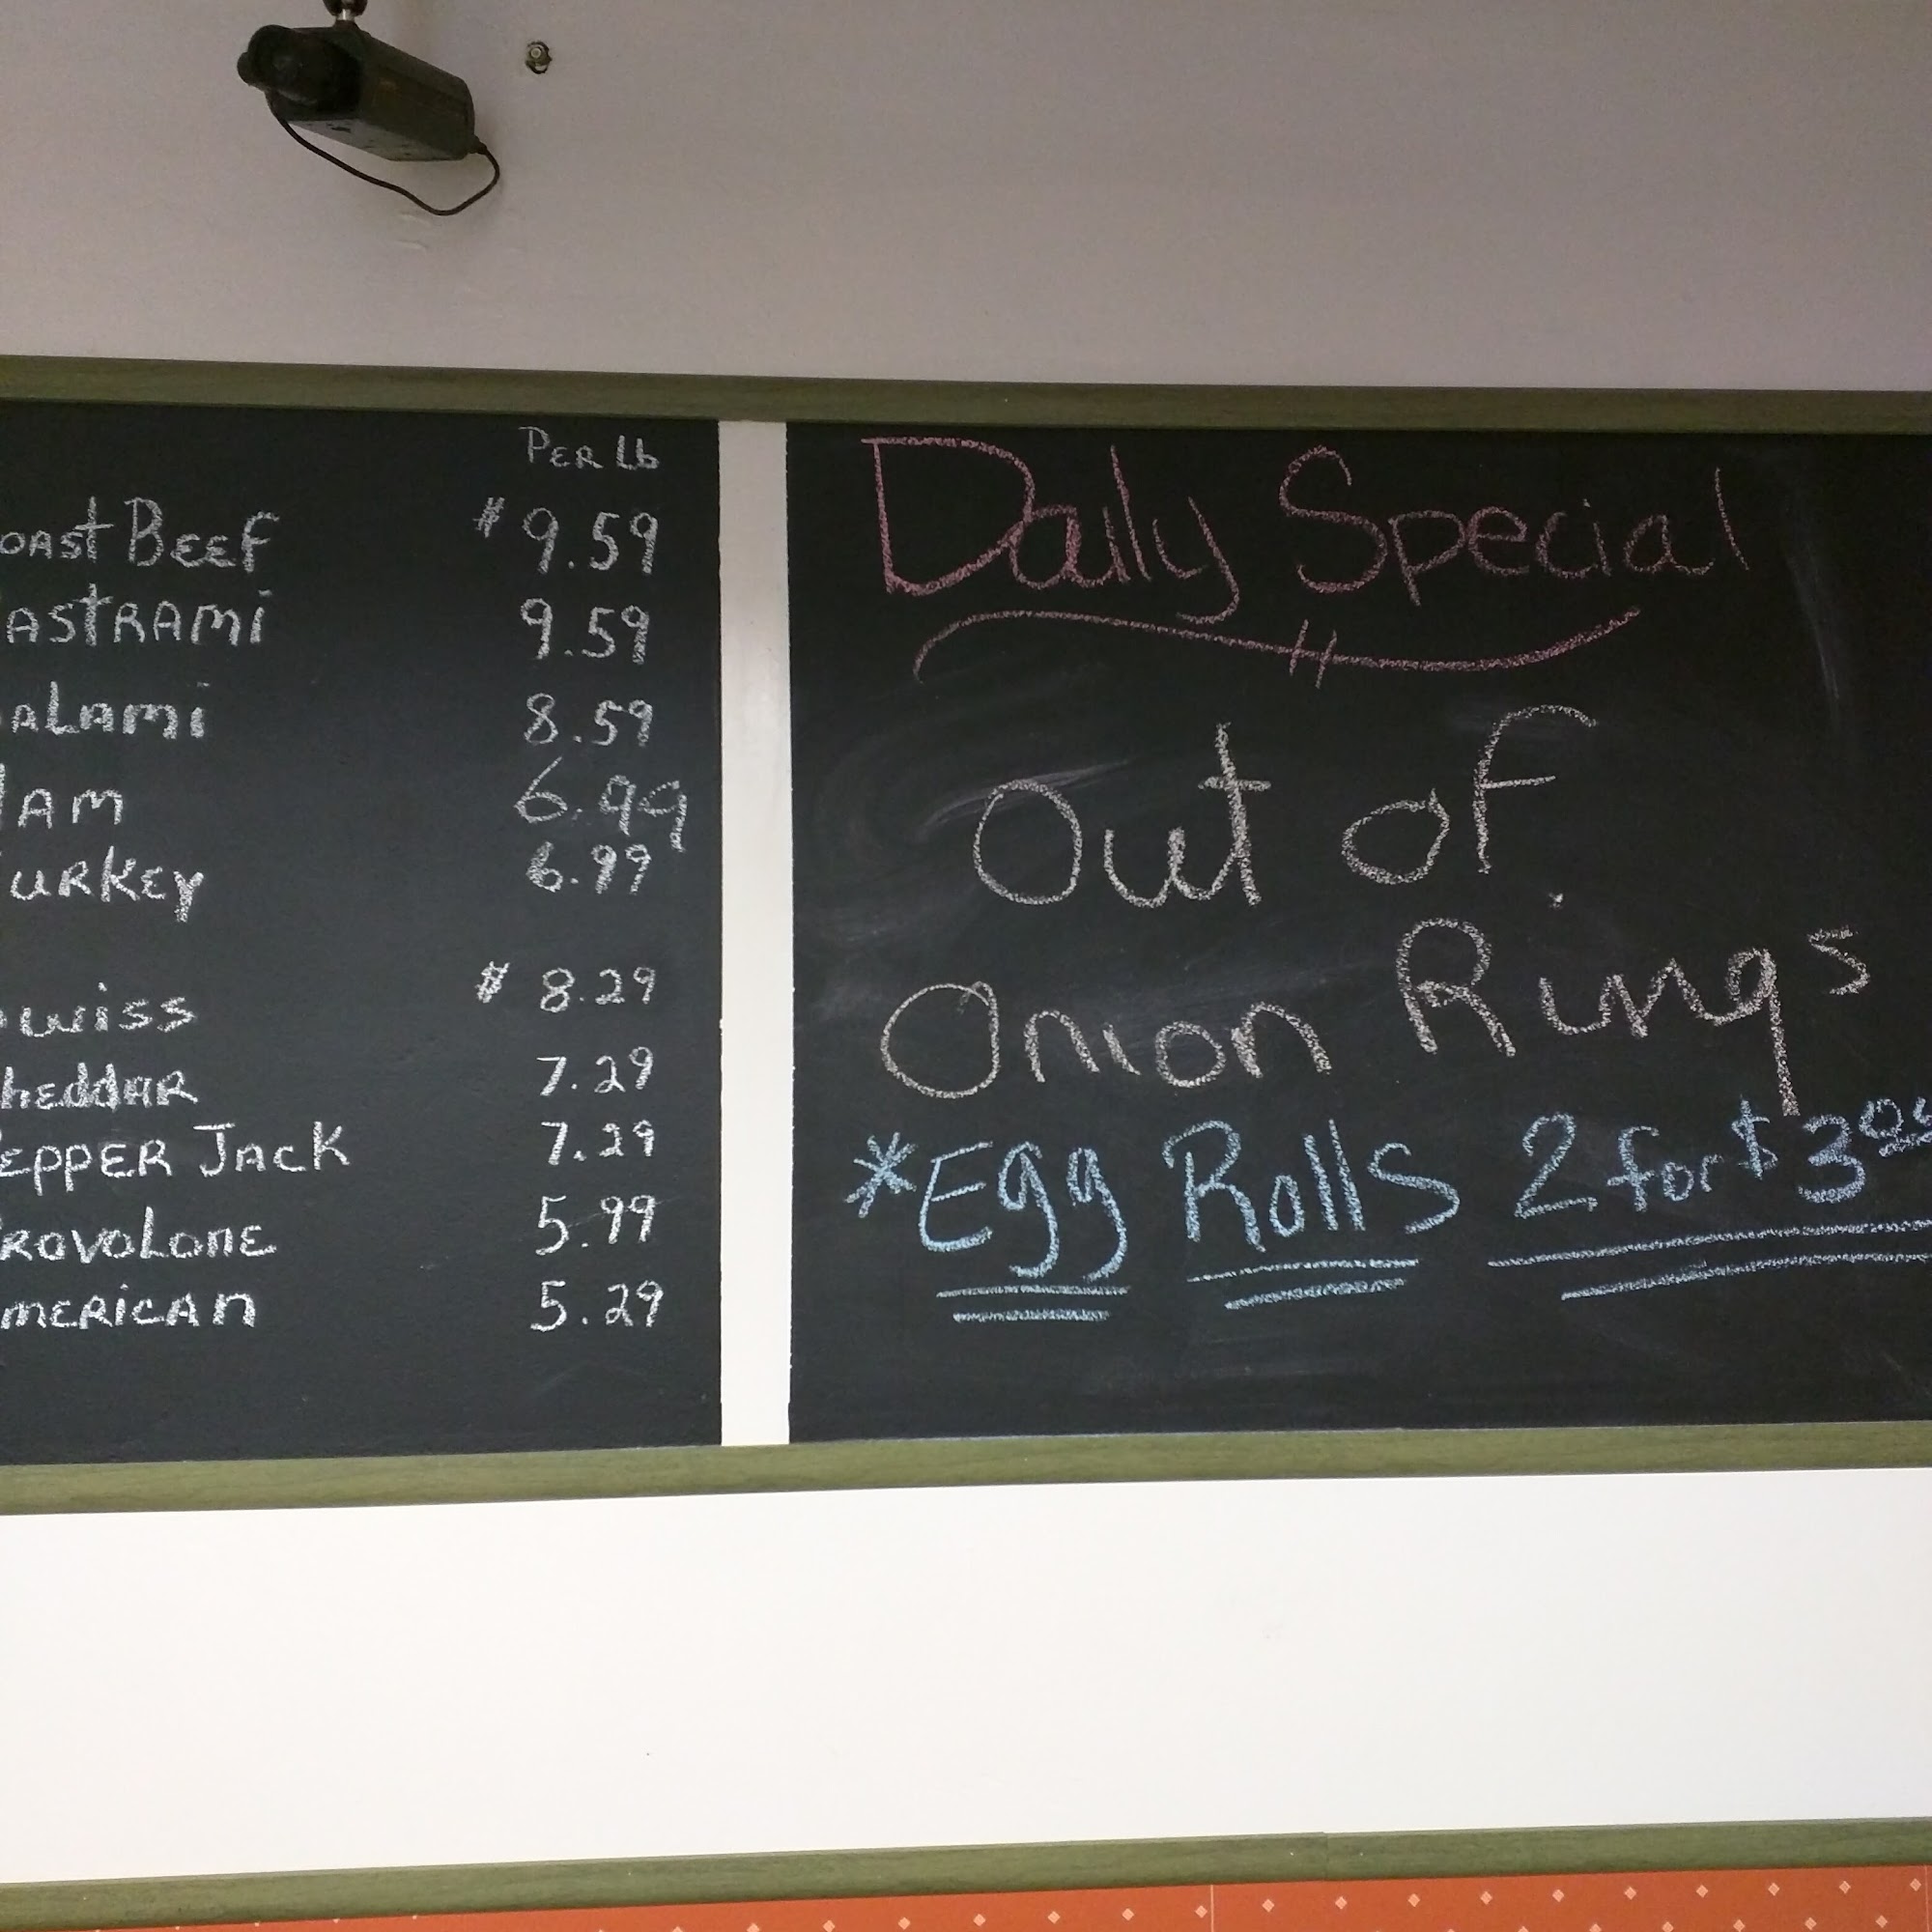 PER Lb
oast Beef $9.59
astrami 9.59
alami 8.59
am 6.99
urkey 6.99
wiss $8.29
heddar 7.29
epper Jack 7.29
rovolone 5.99
merican 5.29
Daily Special
out of
Onion Rings
*Egg Rolls 2 for $3.00